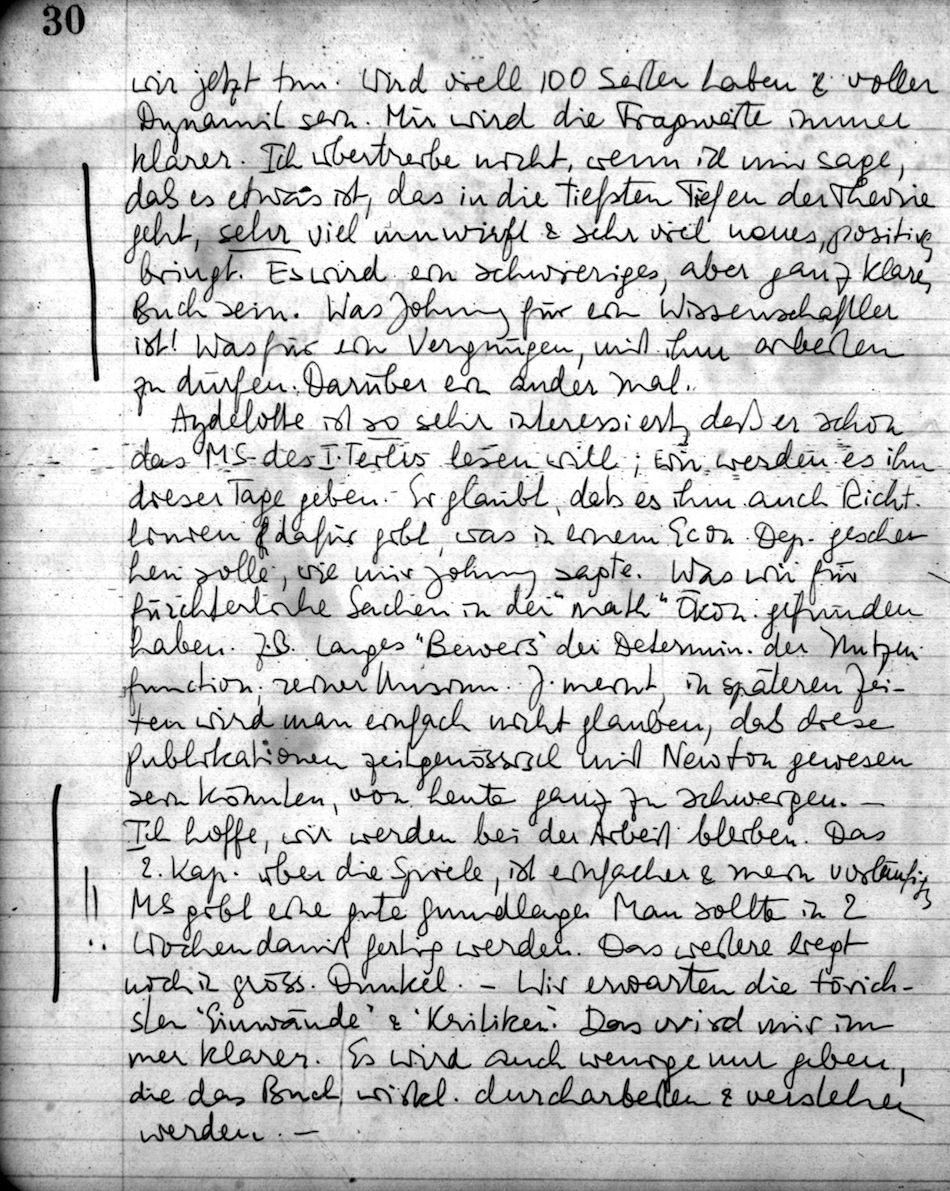 30
wir jetzt tun. Wird viell 100 Seiten haben & voller
Dynamik sein. Mir wird die Tragweite immer
klarer. Ich übertreibe nicht, wenn ich mir sage,
daß es etwas ist, das in die tiefsten Tiefen der Theorie
geht, sehr viel umwirft & sehr viel neues, positives
bringt. Es wird ein schwieriges, aber ganz klares
Buch sein. Was Johnny für ein Wissenschaftler
ist! Was für ein Vergnügen, mit ihm arbeiten
zu dürfen. Darüber ein ander Mal.
Aydelotte ist so sehr interessiert, daß er schon
das MS des I. Teiles lesen will; wir werden es ihm
dieser Tage geben. Er glaubt, daß es ihm auch Richt-
linien dafür gibt, was in einem Econ. Dep. gesche-
hen solle, wie mir Johnny sagte. Was wir für
fürchterliche Sachen in der "math" Ökon. gefunden
haben. z.B. Langes "Beweis" der Determin. der Nutzen-
function; reiner Unsinn. J. meint, in späteren Zei-
ten wird man einfach nicht glauben, daß diese
Publikationen zeitgenössisch mit Newton gewesen
sein könnten, von heute ganz zu schweigen. —
Ich hoffe, wir werden bei der Arbeit bleiben. Das
2. Kap. über die Spiele, ist einfacher & mein vorläufiges
MS gibt eine gute Grundlage. Man sollte in 2
Wochen damit fertig werden. Das weitere liegt
noch in gröss. Dunkel. – Wir erwarten die törich-
sten 'Einwände' & 'Kritiken'. Das wird mir im
mer klarer. Es wird auch wenige nur geben,
die das Buch wirkl. durcharbeiten & verstehen
werden. —